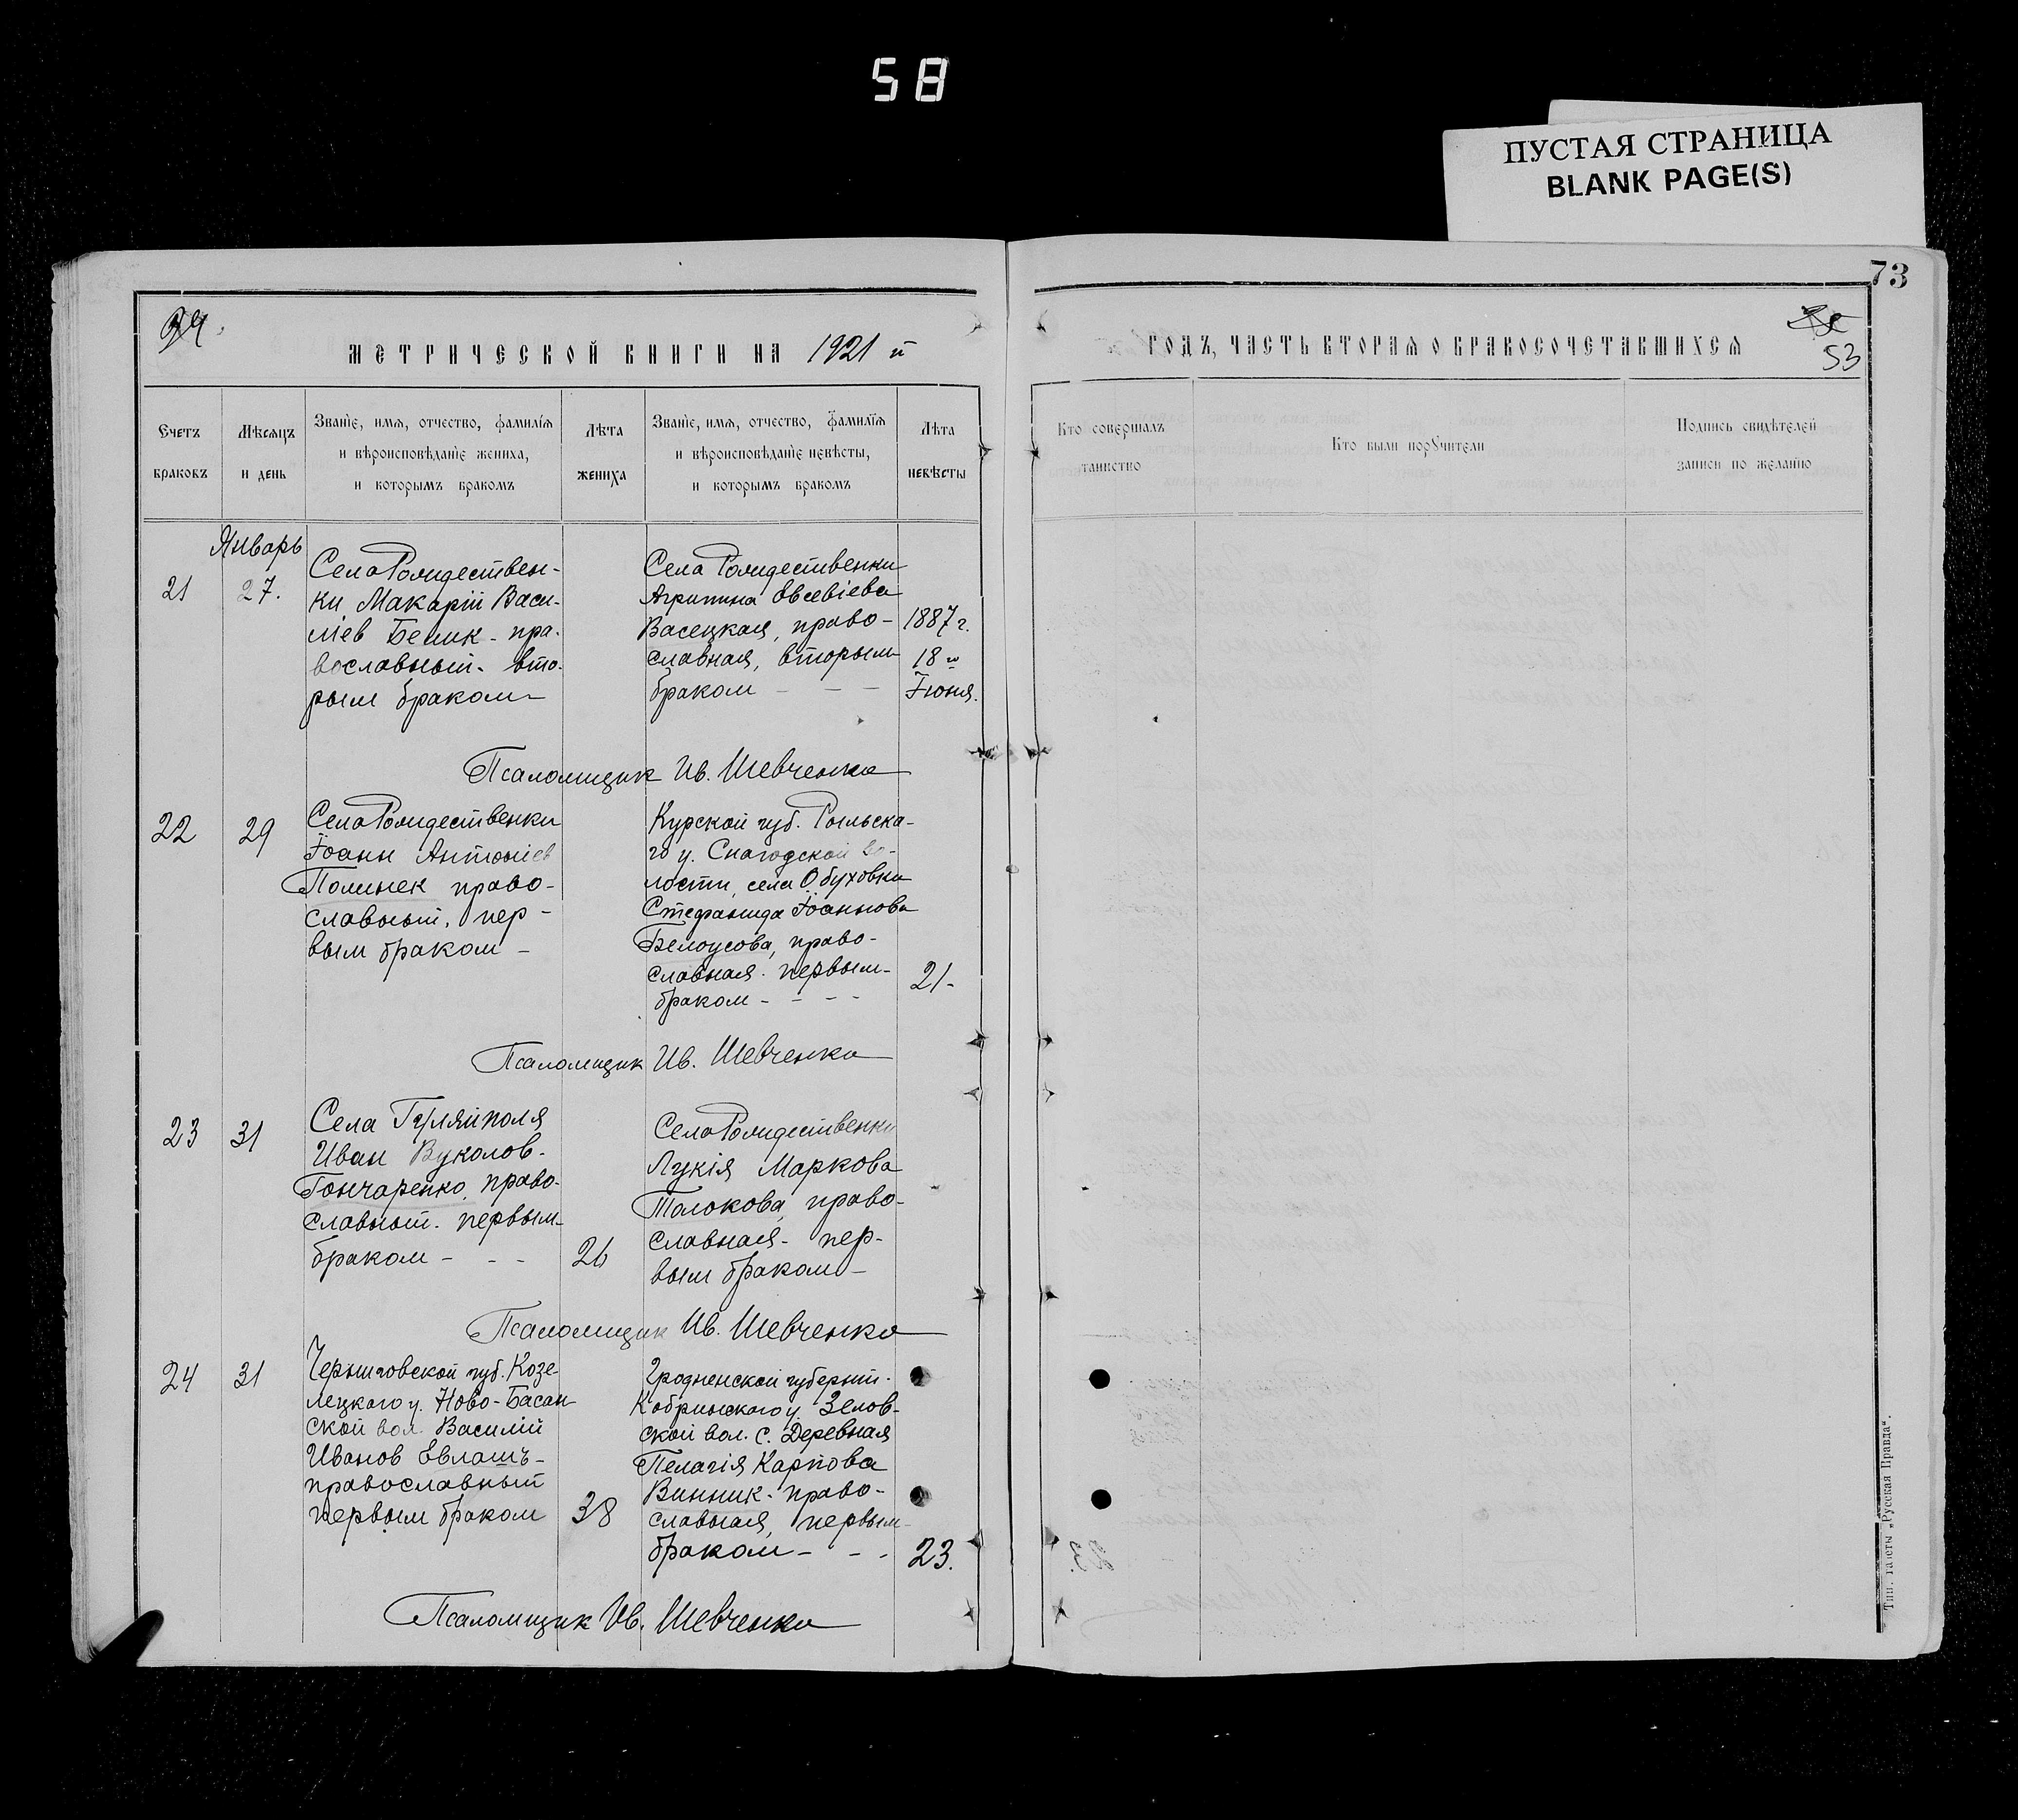 58
ПУСТАЯ СТРАНИЦА
BLANK PAGE(S)
73
53
МЕТРИЧЕСКОЙ КНИГИ НА 1921 й
ГОДЪ, ЧАСТЬ ВТОРАЯ О БРАКОСОЧЕТАВШИХСЯ
Счетъ
браковъ
Мѣсяцъ
и день
Званіе, имя, отчество, фамилія
и вѣроисповѣданіе жениха,
и которымъ бракомъ
Лѣта
жениха
Званіе, имя, отчество, фамилія
и вѣроисповѣданіе невѣсты,
и которымъ бракомъ
Лѣта
невѣсты
Кто совершалъ
таинство
Кто были поручители
Подпись свидѣтелей
записи по желанію
Январь
21
27.
Села Рождествен-
ки Макарій Васи-
ліев Белик - пра-
вославный. вто-
рым браком
Села Рождественки
Агрипина Евсевіева
Васецкая, право-
славная, вторым
браком - - -
1887 г.
18 го
Іюня.
Псаломщик Ив. Шевченко
22
29
Села Рождественки
Іоанн Антоніев
Полинек право-
славный, пер-
вым браком -
Курской губ. Рыльска-
го у. Снагодской во-
лости, села Обуховки
Стефанида Іоаннова
Белоусова, право-
славная. первым-
браком - - - -
21-
Псаломщик Ив. Шевченко
23
31
Села Гуляйполя
Иван Вуколов-
Гончаренко, право-
славный. первым
браком - - -
26
Села Рождественки
Лукія Маркова
Толокова, право-
славная - пер-
вым браком -
Псаломщик Ив. Шевченко
24
31
Черниговской губ. Козе-
лецкого у. Ново-Басан-
ской вол. Василій
Иванов Евлашъ-
православный
первым браком
38
Гродненской губерніи.
Кобринского у. Зелов-
ской вол. с. Деревная
Пелагія Карпова
Винник - право-
славная, первым-
браком - - -
23.
Псаломщик Ив. Шевченко
Тип. газеты „Русская Правда“.